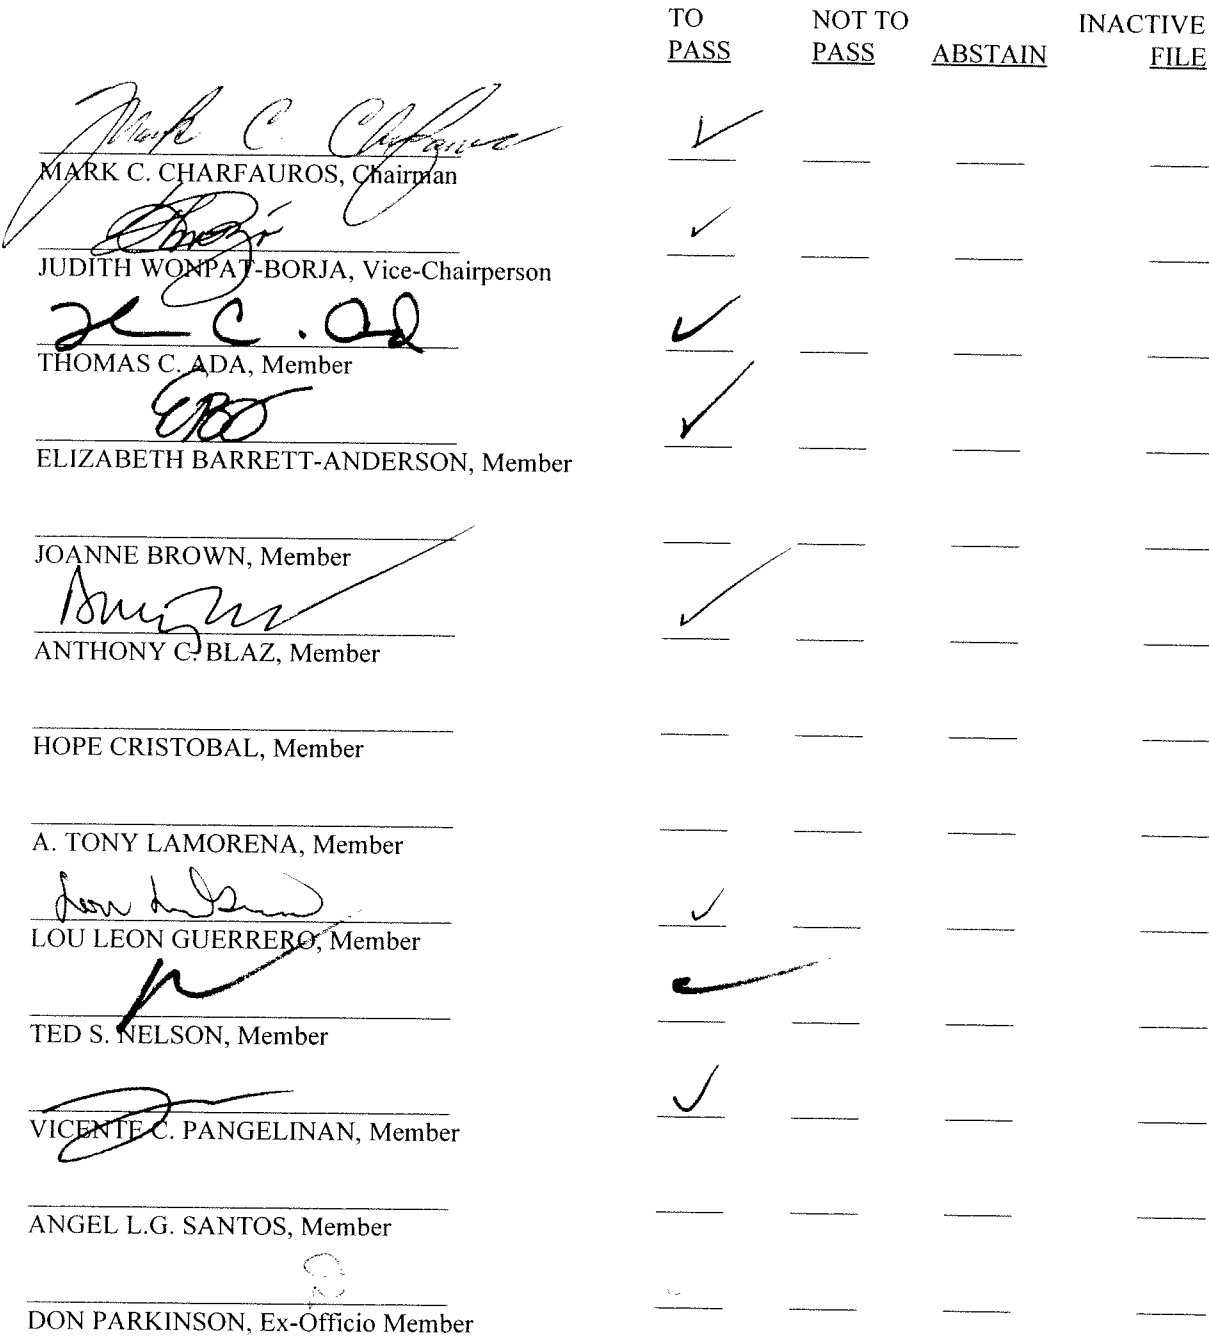 TO PASS
NOT TO PASS
ABSTAIN
INACTIVE FILE
Mark C. Charfauros
MARK C. CHARFAUROS, Chairman
JUDITH WONPAT-BORJA, Vice-Chairperson
MARK
THOMAS C. ADA, Member
EBA
ELIZABETH BARRETT-ANDERSON, Member
JOANNE BROWN, Member
ANTHONY C. BLAZ, Member
HOPE CRISTOBAL, Member
A. TONY LAMORENA, Member
LOU LEON GUERRERO, Member
TED S. NELSON, Member
VICENTE C. PANGELINAN, Member
ANGEL L.G. SANTOS, Member
DON PARKINSON, Ex-Officio Member